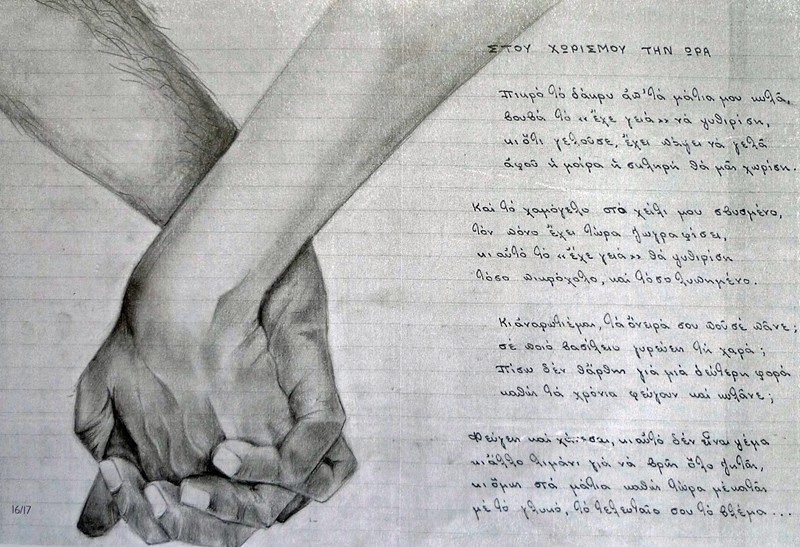 ΣΤΟΥ ΧΩΡΙΣΜΟΥ ΤΗΝ ΩΡΑ
Πικρό τό δάκρυ ἀπ' τά μάτια μου κυλᾶ,
βουβά τό «ἔχε γειά» νά ψυθιρίση,
κι ὅτι γελοῦσε, ἔχει πάψει νά γελᾶ
ἀφοῦ ἡ μοίρα ἡ σκληρή θά μᾶς χωρίση.
Καί τό χαμόγελο στά χείλη μου σβυσμένο,
τόν πόνο ἔχει τώρα ζωγραφίσει,
κι αὐτό τό «ἔχε γειά» θά ψυθιρίση
τόσο πικρόχολο, καί τόσο λυπημένο.
Κι ἀναρωτιέμαι, τά ὄνειρά σου ποῦ σέ πᾶνε;
σέ ποιό βασίλειο γυρεύεις τή χαρά;
Πίσω δέν θἄρθης γιά μιά δεύτερη φορά
καθώς τά χρόνια φεύγουν καί κυλᾶνε;
Φεύγεις καί κι αὐτό δέν εἶναι ψέμα
κι ἄλλο λιμάνι γιά νά βρῆς ὅλο ζητᾶς,
κι ὅμως στά μάτια καθώς τώρα μέ κοιτᾶς
μέ τό γλυκό, τό τελευταῖο σου τό βλέμα...
16/17